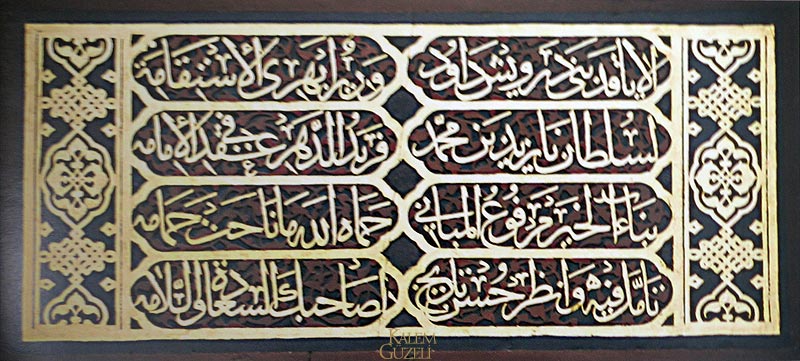 الا يا قد بنى درويش داود
وزير الاستقامه
لسلطان بايزيد بن محمد
فريد الدهر في عقد الامامه
بناء الخير مرفوع المباني
حماه الله ما ناحت حمامه
تامل فيه وانظر حسن تاريخ
لصاحبك السعادة والسلامه
KALEM
GUZELİ